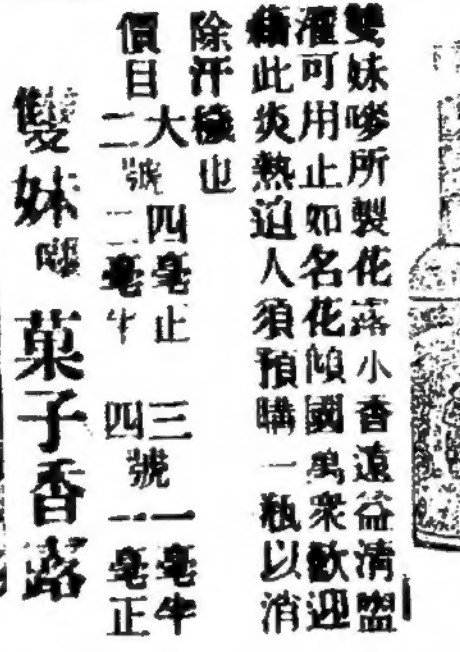 雙妹嘜所製花露小香遠益清盥
濯可用止如名花傾國萬衆歡迎
此炎熱迫人須預購一瓶以消
除汗穢也
價目 大號四毫止 三號一毫半
二號二毫半 四號一毫正
雙妹嘜菓子香露